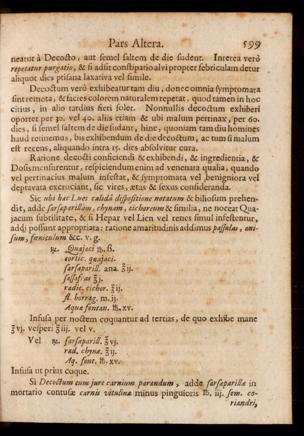 Pars Altera. 599
neatur à Decocto, aut semel saltem de die sudent. Interea verò
repetatur purgatio, & si adsit constipatio alvi propter febriculam detur
aliquot dies ptisana laxativa vel simile.
Decoctum verò exhibeatur tam diu, donec omnia symptomata
sint remota, & facies colorem naturalem repetat, quod tamen in hoc
citius, in alio tardius fieri solet. Nonnullis decoctum exhiberi
oportet per 30. vel 40. aliis etiam & ubi malum pertinax, per 60.
dies, si semel saltem de die sudant, hinc, quoniam tam diu homines
haud retinemus, bis exhibendum de die decoctum, ac tum si malum
est recens, aliquando intra 15. dies absolvitur cura.
Ratione decocti conficiendi & exhibendi, & ingredientia, &
Dosis mensurentur, respiciendum enim ad venenata qualia, quando
vel pertinacius malum infestat, & symptomata vel benigniora vel
deptavata excruciant, sic vires, ætas & sexus consideranda.
Sic ubi hæc Lues calidâ dispositione notatum & biliosum prehendit,
adde sarsaparillam, chynam, cichoreum & similia, ne noceat Quajacum
subtilitate, & si Hepar vel Lien vel renes simul infestentur,
addi possunt appropriata: ratione amaritudinis addimus passulas, anisum,
fœniculum &c. v. g.
℞. Quajaci ℔. ß.
cortic. quajaci.
sarsaparill. ana. ℥ij.
sassafras ℥j.
radic. cichor. ℥ij.
fl. borrag. m. ij.
Aqua fontan. ℔. xv.
Infusa per noctem coquantur ad tertias, de quo exhibe mane
℥vj. vesperi ℥iij. vel v.
Vel ℞. sarsaparill. ℥vj.
rad. chynæ. ℥ij.
Aq. font. ℔. xv.
Infusa ut prius coque.
Si Decoctum cum jure carnium parandum, adde sarsaparilla in
mortario contusæ carnis vitulina minus pinguioris ℔. iij. sem. coriandri,